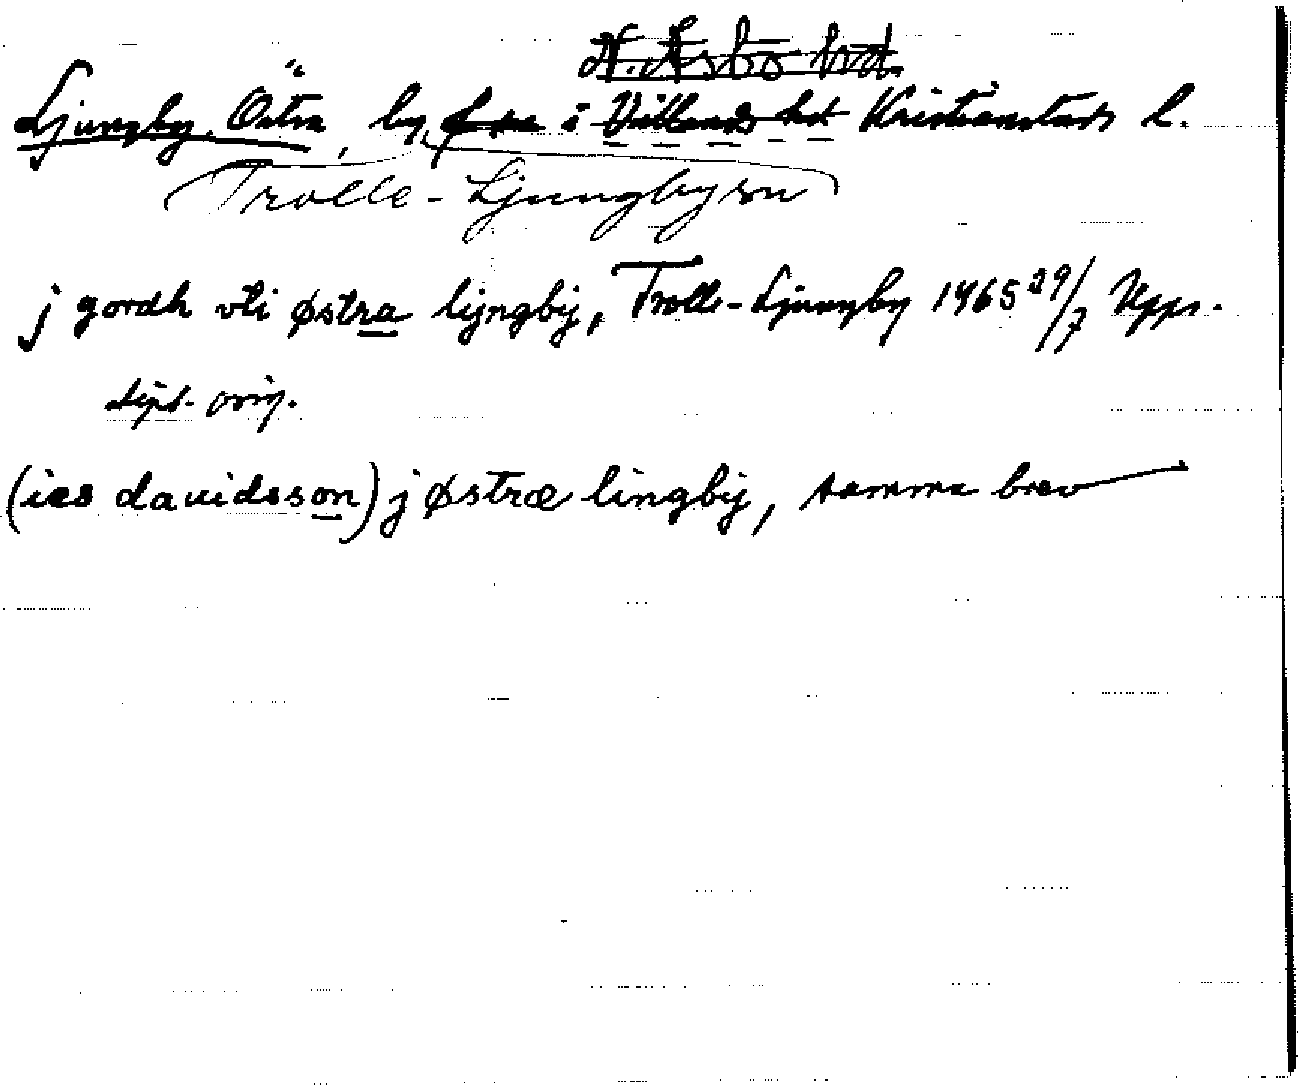 N. Åsbo hd.
Ljungby, Östra, by, i Villands hd Kristianstads l.
Trolle-Ljungby sn
j gordh vti østra lijngbij, Trolle-Ljungby 1465 29/7 Upps.
dipl. orig.
(ies davidsson) j østræ lingbij, samma brev